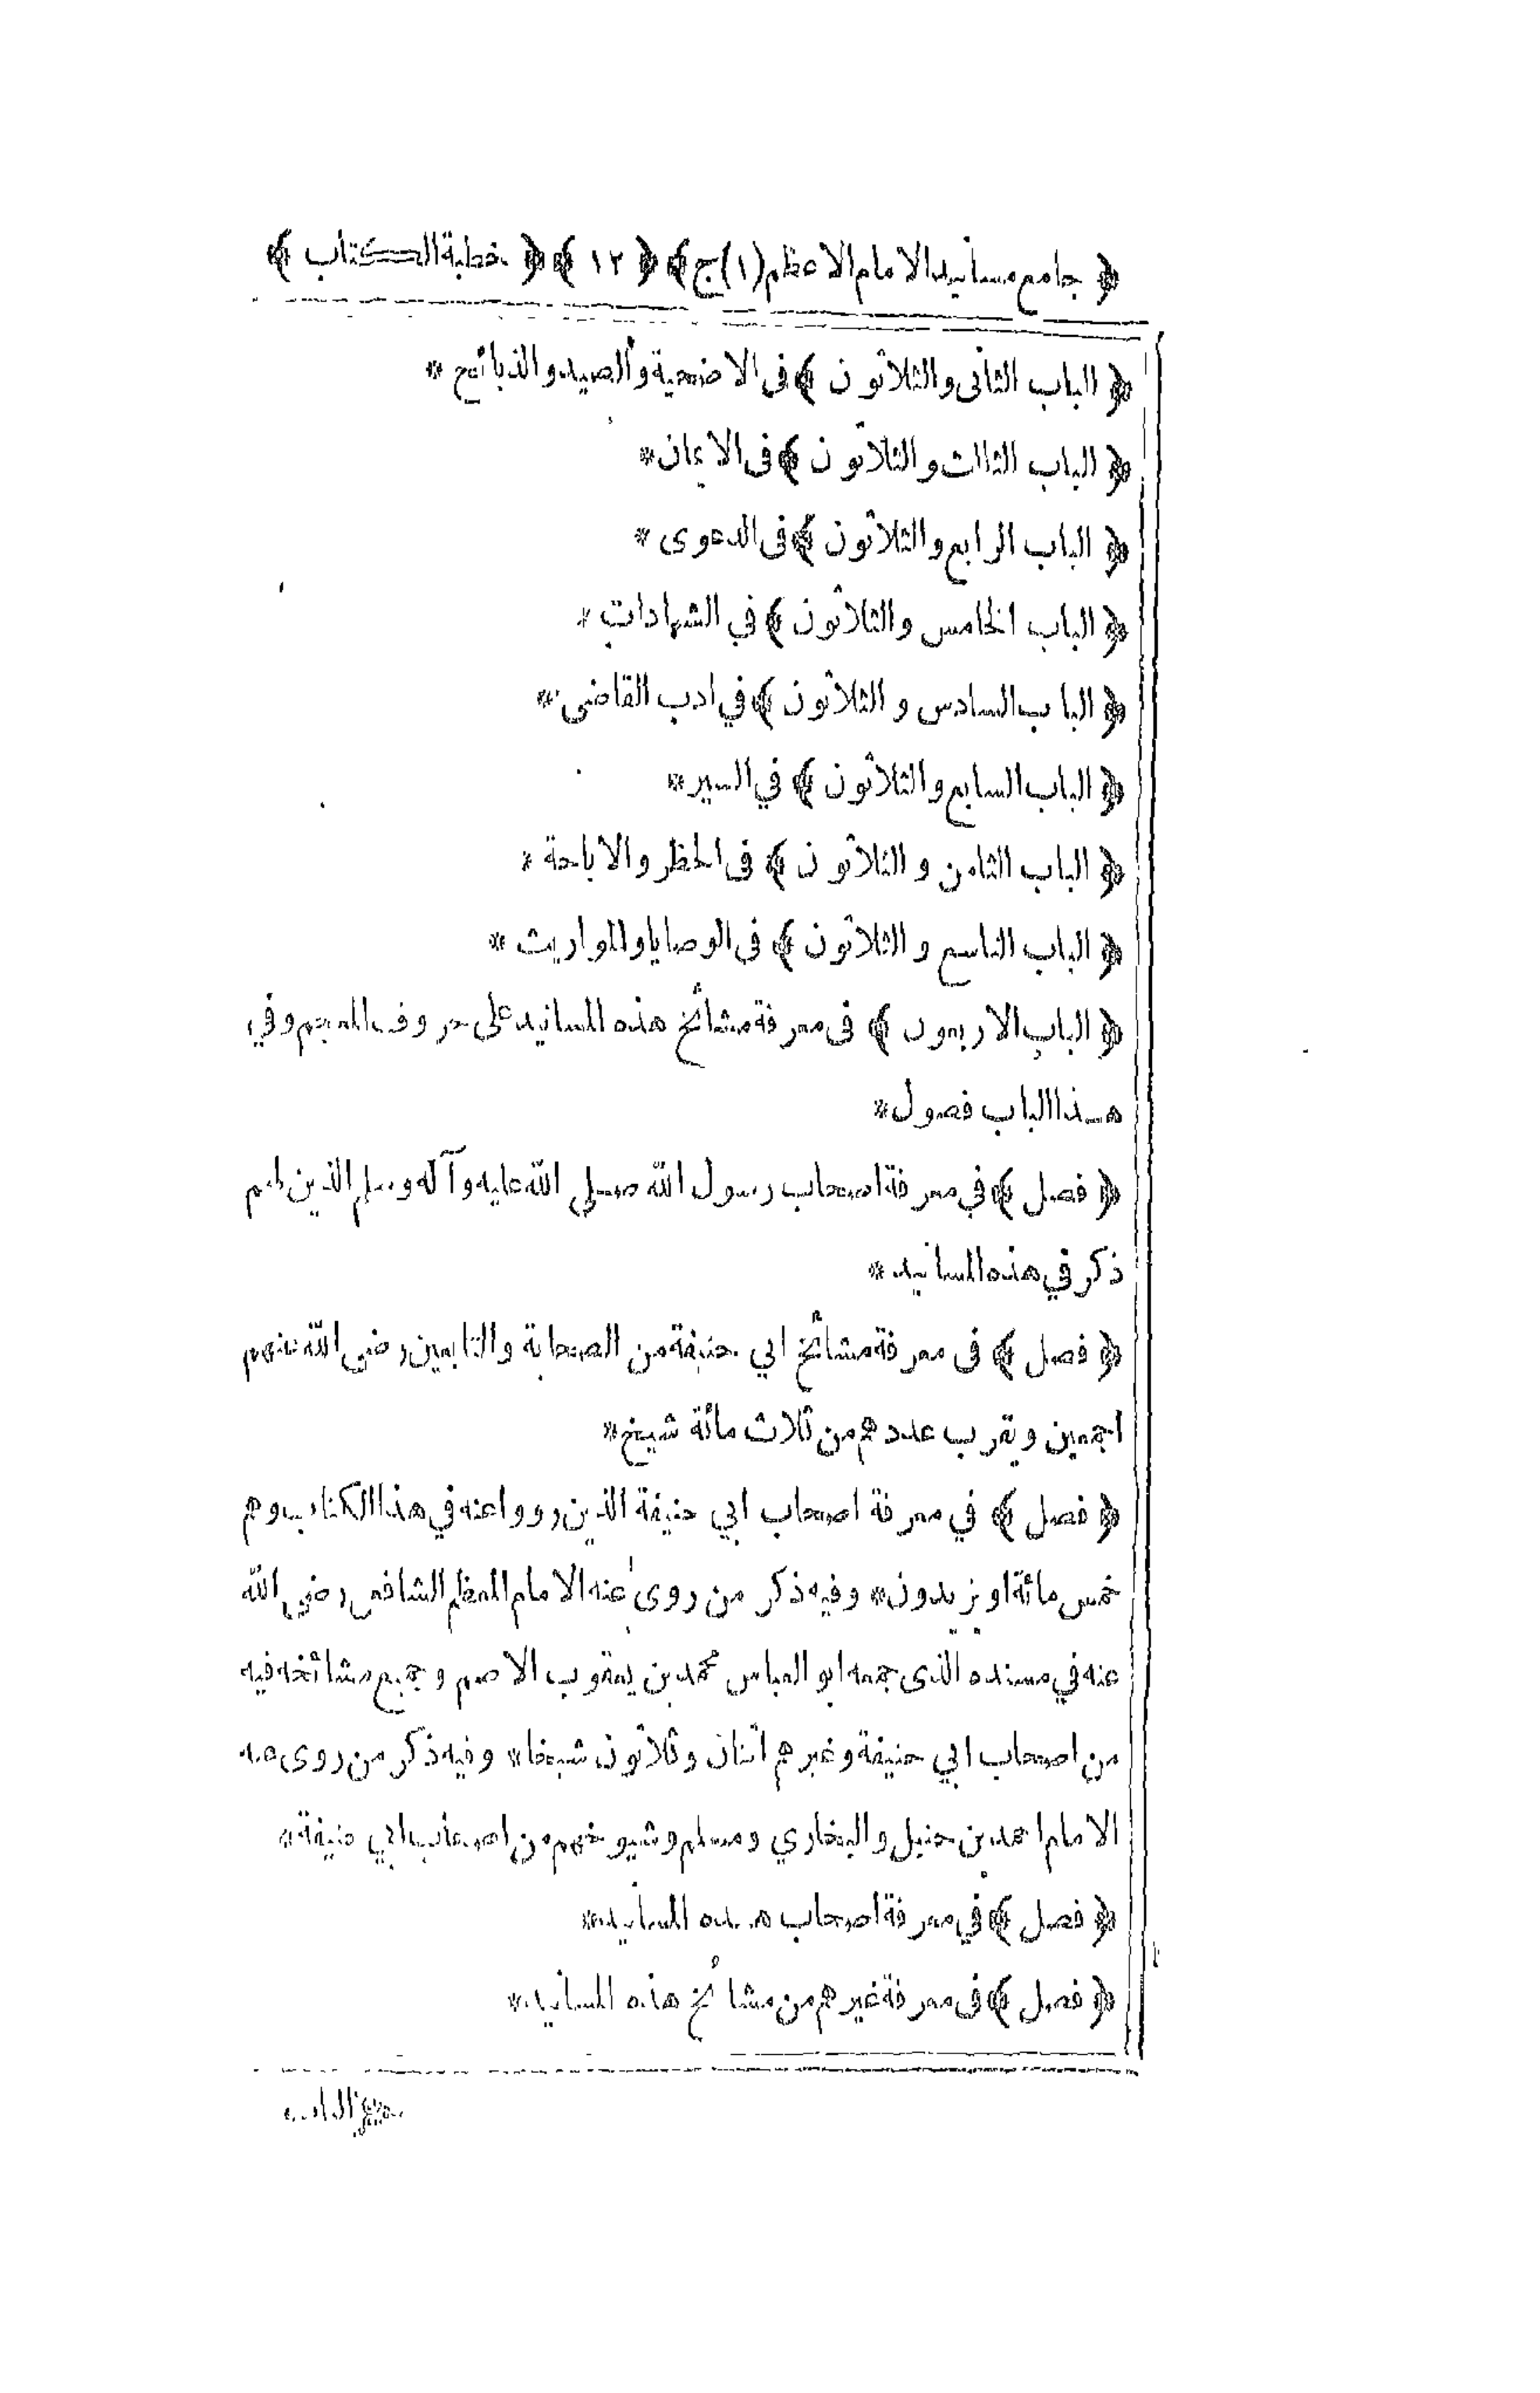 ﴿ جامع مسانيد الامام الاعظم (١) ج ﴾ ﴿ ١٢ ﴾ ﴿ خطبة الكتاب ﴾
﴿ الباب الثانى والثلاثون ﴾ فى الاضحية والصيد والذبائح *
﴿ الباب الثالث والثلاثون ﴾ فى الايمان *
﴿ الباب الرابع والثلاثون ﴾ فى الدعوى *
﴿ الباب الخامس والثلاثون ﴾ في الشهادات *
﴿ الباب السادس والثلاثون ﴾ في ادب القاضى *
﴿ الباب السابع والثلاثون ﴾ في السير *
﴿ الباب الثامن والثلاثون ﴾ فى الحظر والاباحة *
﴿ الباب التاسع والثلاثون ﴾ فى الوصايا والمواريث *
﴿ الباب الاربعون ﴾ فى معرفة مشائخ هذه المسانيد على حروف المعجم وفي
هذا الباب فصول *
﴿ فصل ﴾ في معرفة اصحاب رسول الله صلى الله عليه وآله وسلم الذين لهم
ذكر في هذه المسانيد *
﴿ فصل ﴾ فى معرفة مشائخ ابي حنيفة من الصحابة والتابعين رضى الله عنهم
اجمعين ويقرب عددهم من ثلاث مائة شيخ *
﴿ فصل ﴾ في معرفة اصحاب ابي حنيفة الذين رووا عنه في هذا الكتاب وهم
خمس مائة او يزيدون * وفيه ذكر من روى عنه الامام المعظم الشافعى رضى الله
عنه في مسنده الذى جمعه ابو العباس محمد بن يعقوب الاصم وجميع مشائخه فيه
من اصحاب ابي حنيفة وغيرهم اثنان وثلاثون شيخا * وفيه ذكر من روى عنه
الامام احمد بن حنبل والبخاري ومسلم وشيوخهم من اصحاب ابي حنيفة *
﴿ فصل ﴾ في معرفة اصحاب هذه المسانيد *
﴿ فصل ﴾ فى معرفة غيرهم من مشائخ هذه المسانيد *